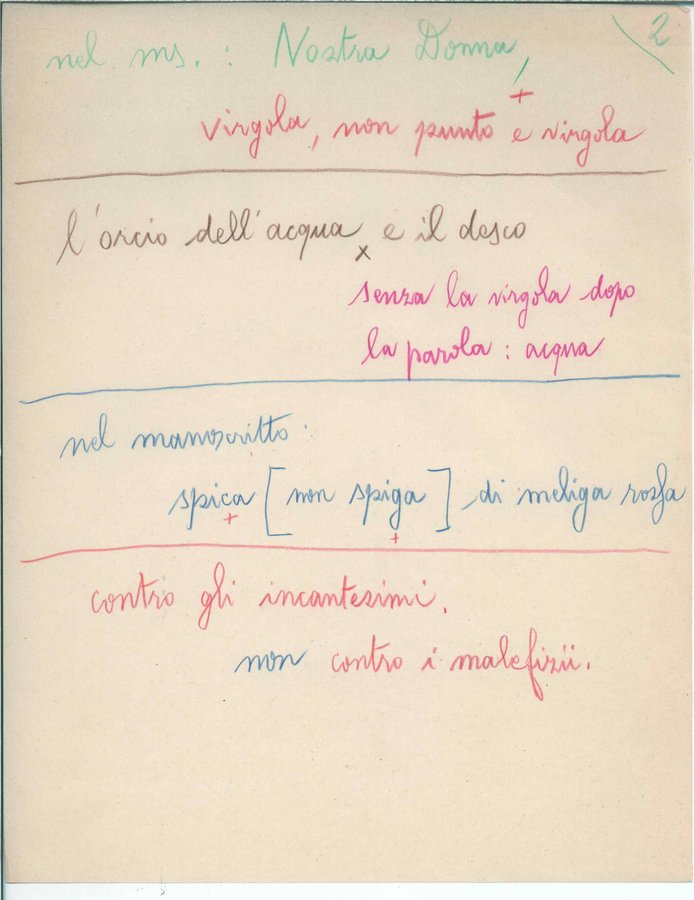 2
nel ms. : Nostra Donna,
+
virgola, non punto e virgola
l'orcio dell'acqua e il desco
x
senza la virgola dopo
la parola : acqua
nel manoscritto :
spica [non spiga] di meliga rossa
+ +
contro gli incantesimi.
non contro i malefizii.